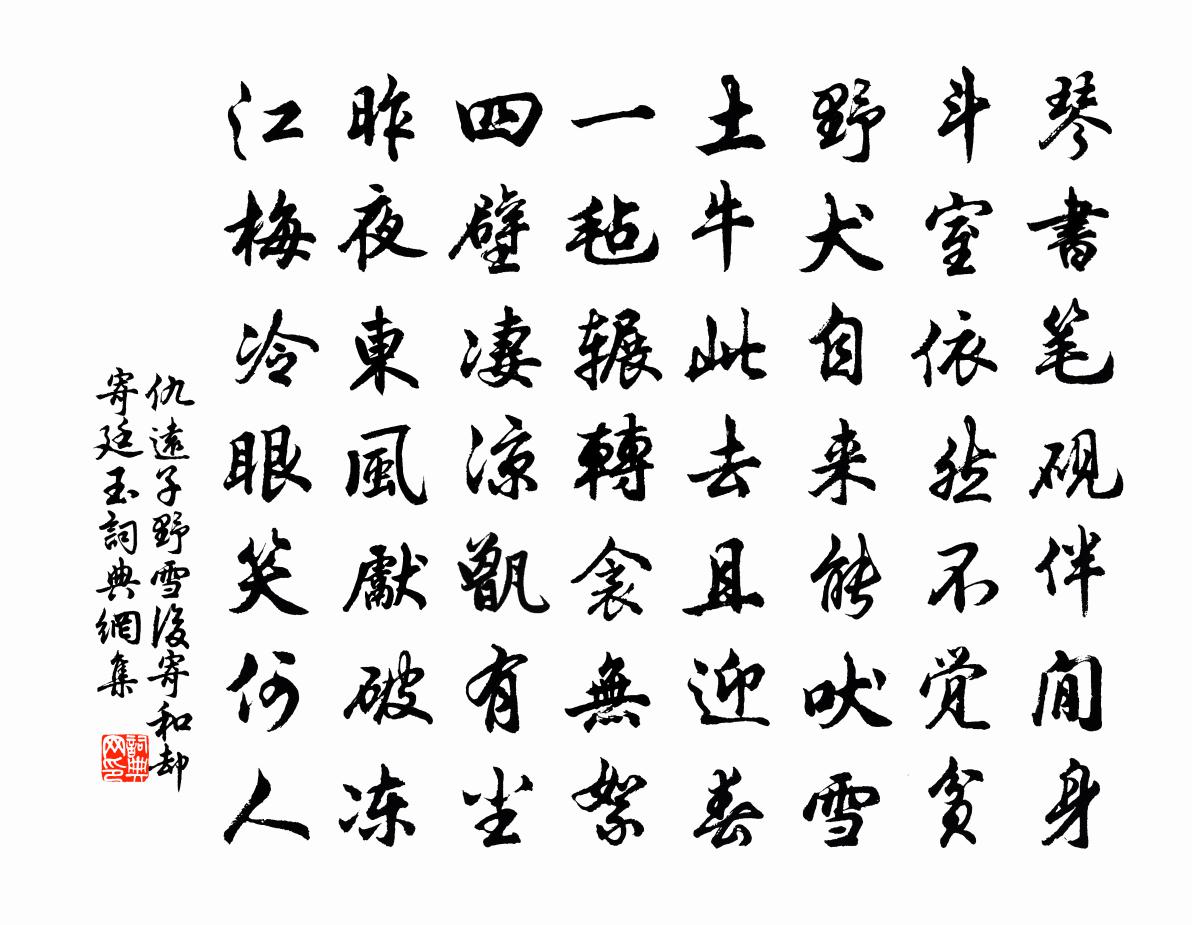 琴書笔砚伴闲身
斗室依然不觉贫
野犬自来能吠雪
土牛此去且迎春
一毡辗轉衾無絮
四壁凄凉甑有尘
昨夜東風獻破冻
江梅冷眼笑何人
仇遠子野雪後寄和却
寄廷玉詞典網集
詞典
网印